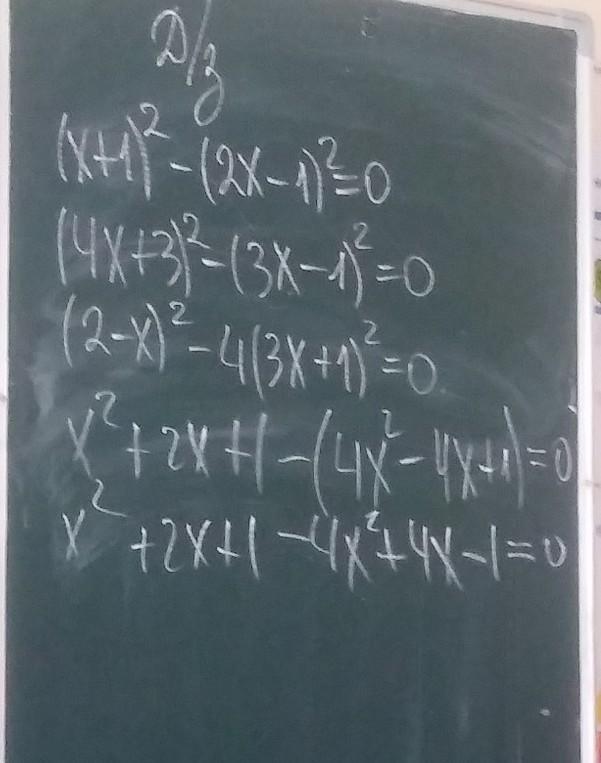 Д/з
(x+1)² - (2x-1)² = 0
(4x+3)² - (3x-1)² = 0
(2-x)² - 4(3x+1)² = 0
x² + 2x + 1 - (4x² - 4x + 1) = 0
x² + 2x + 1 - 4x² + 4x - 1 = 0